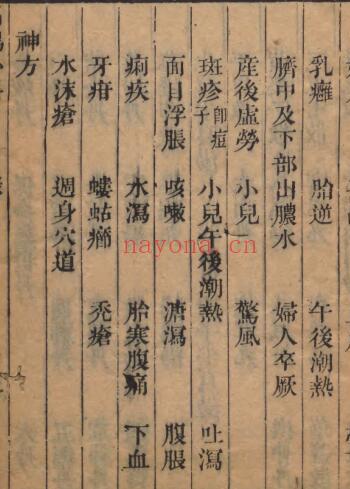 乳癰 胎逆 午後潮熱
臍中及下部出膿水 婦人卒厥
産後虛勞 小兒驚風
斑疹即痘子 小兒午後潮熱 吐瀉
面目浮脹 咳嗽 溏瀉 腹脹
痢疾 水瀉 胎寒腹痛 下血
牙疳 螻蛄癤 禿瘡
水沫瘡 週身穴道
神方
nayona.cn